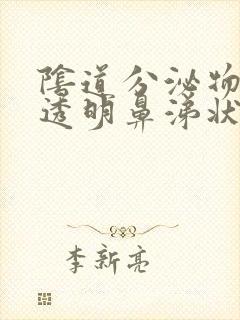 陰道分泌物
透明鼻涕狀
李新亮